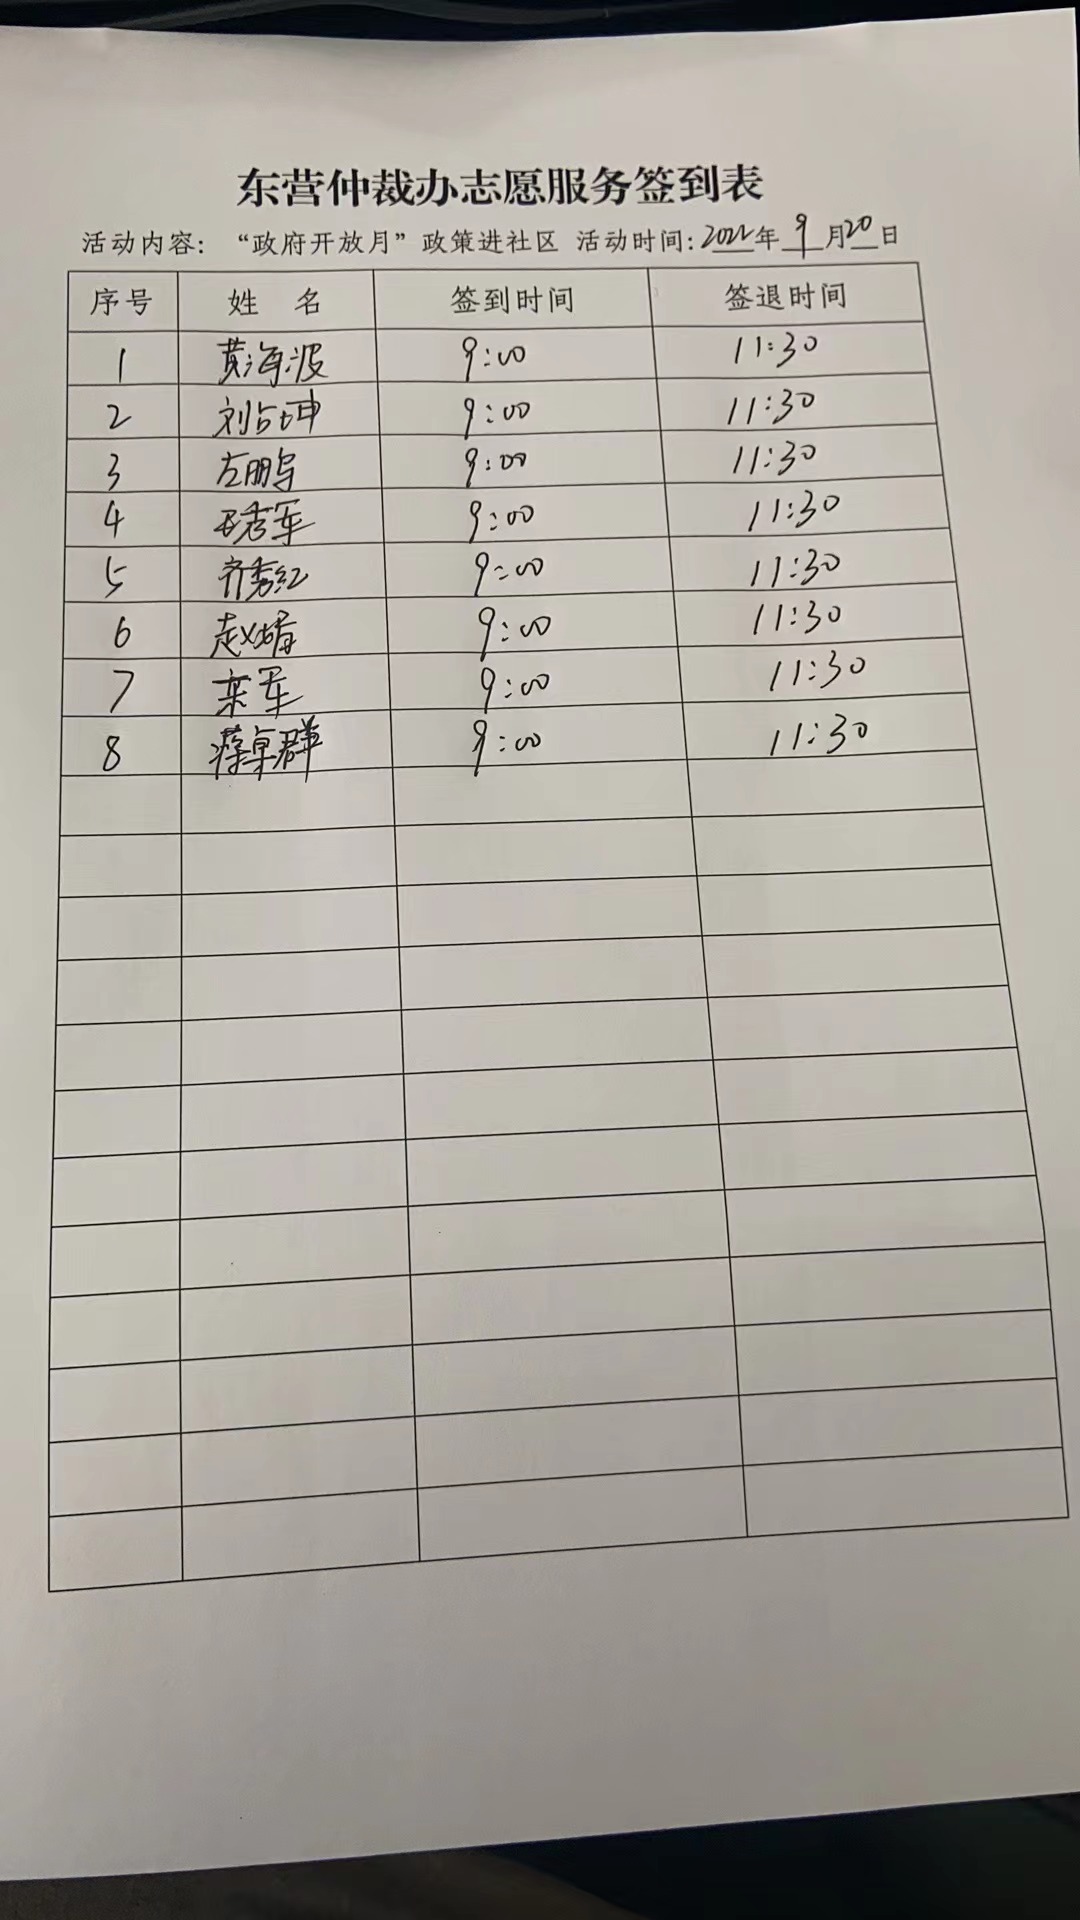 东营仲裁办志愿服务签到表
活动内容：“政府开放月”政策进社区 活动时间：2022年 9 月 20 日
序号 姓 名 签到时间 签退时间
1 黄海波 9:00 11:30
2 刘占坤 9:00 11:30
3 左鹏 9:00 11:30
4 秀军 9:00 11:30
5 齐秀红 9:00 11:30
6 赵婧 9:00 11:30
7 栾军 9:00 11:30
8 卓群 9:00 11:30